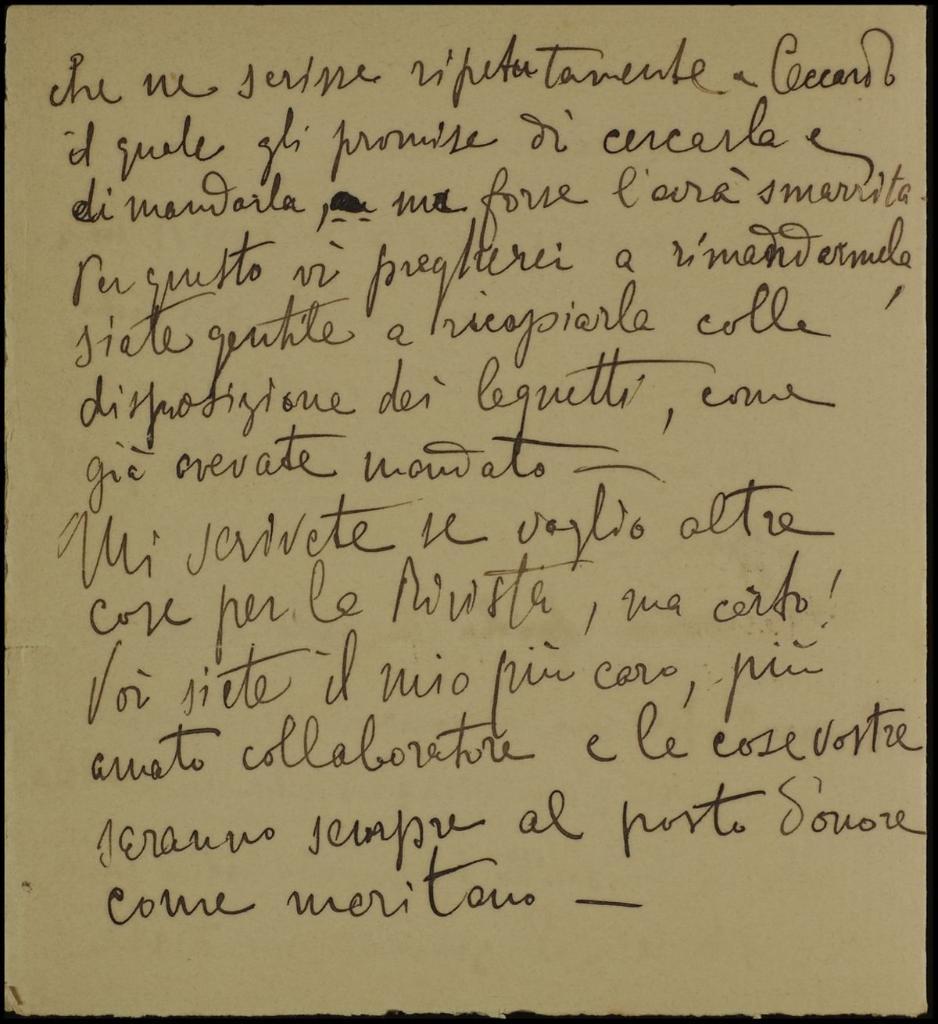 che ne scrisse ripetutamente a Ceccardo
il quale gli promise di cercarla e
di mandarla, ma forse l'avrà smarrita.
Per questo vi pregherei a rimandarmela,
siate gentile a ricopiarla colla
disposizione dei legnetti, come
già avevate mandato —
Mi scrivete se voglio altre
cose per la Rivista, ma certo!
Voi siete il mio più caro, più
amato collaboratore e le cose vostre
saranno sempre al posto d'onore
come meritano —